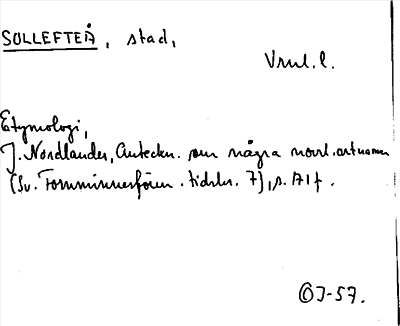 SOLLEFTEÅ, stad,
Vrml. l.
Etymologi,
J. Nordlander, Anteckn. om några norrl. ortnamn
(Sv. Fornminnesfören. tidskr. 7), s. 217 f.
OJ-57.